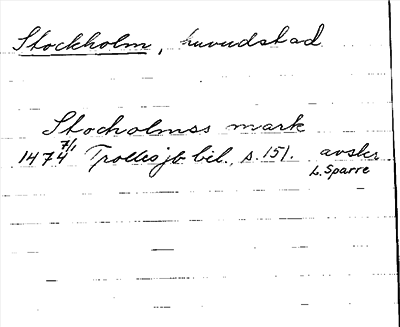 Stockholm, huvudstad
Stocholmss mark
1474 7/1 Trolles jb bil., s. 151. avskr
L. Sparre